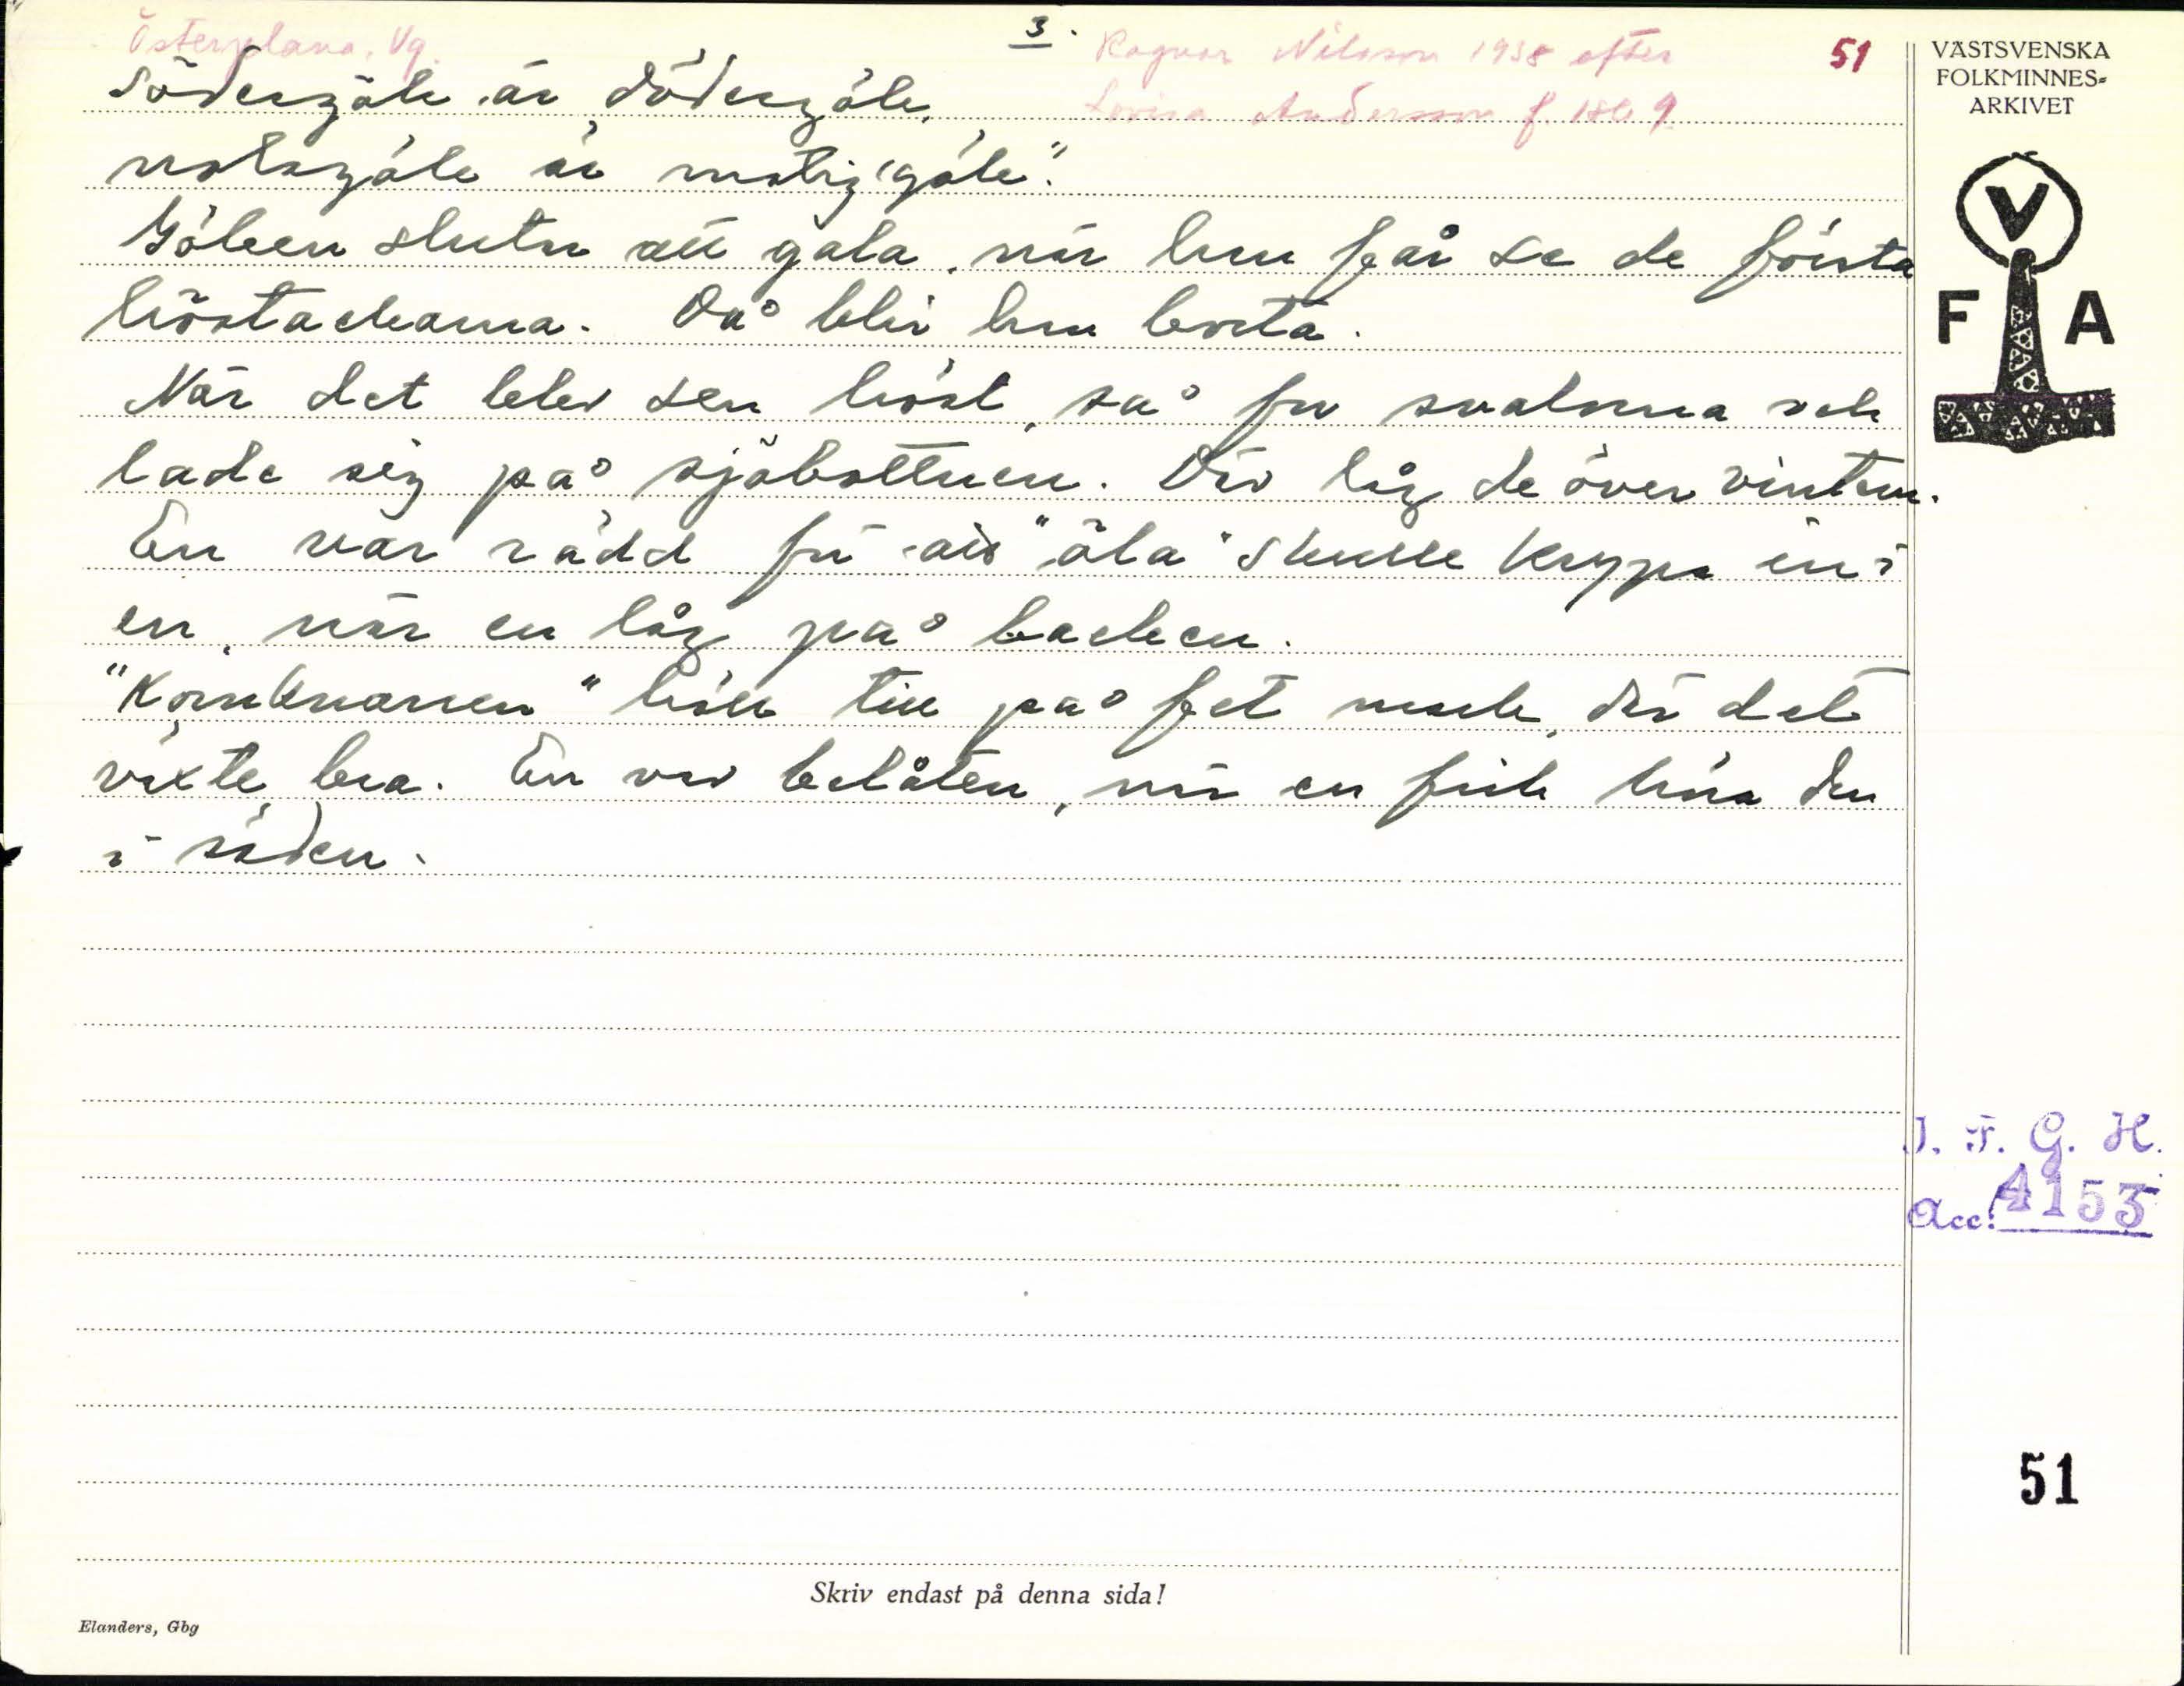 Österplana, Vg. 3. Ragnar Nilsson 1938 efter 51
Lovisa Andersson f. 1869
södergök är dödergök,
norlagök är
Göken slutar att gala, när hun får se de första
höstackarna. Då blir hun borta.
När det blev sen höst, så for svalorna och
lade sig på sjöbottnen. Där låg de över vintern.
En var rädd för att "öla" skulle krypa in i
en, när en låg på backen.
"Kornknarren" höll till på fet mark, där det
växte bra. En var belåten, när en fick höra den
i säden.
VÄSTSVENSKA
FOLKMINNES=
ARKIVET
V
F A
I. F. G. H.
Acc: 4153
51
Skriv endast på denna sida!
Elanders, Gbg